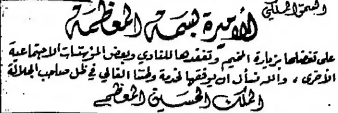 السمو الملكي
الأميرة بسمة المعظمة
على تفضلها بزيارة المخيم وتفقدها للنادي وبعض المؤسسات الاجتماعية
الأخرى ، والله نسأل ان يوفقها لخدمة وطننا الغالي في ظل صاحب الجلالة
الملك الحسين المعظم